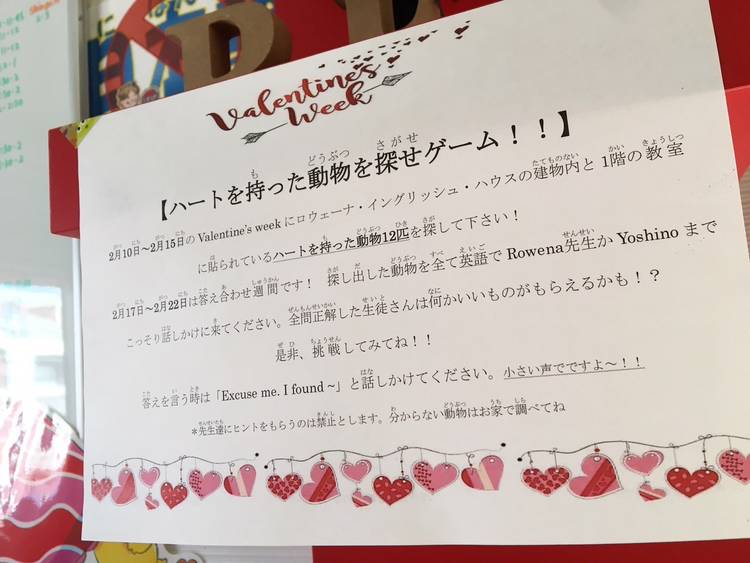 Valentine's
Week
【ハートを持った動物を探せゲーム！！】
2月10日～2月15日のValentine's weekにロウェーナ・イングリッシュ・ハウスの建物内と1階の教室
に貼られているハートを持った動物12匹を探して下さい！
2月17日～2月22日は答え合わせ週間です！ 探し出した動物を全て英語でRowena先生かYoshinoまで
こっそり話しかけに来てください。全問正解した生徒さんは何かいいものがもらえるかも！？
是非、挑戦してみてね！！
答えを言う時は「Excuse me. I found～」と話しかけてください。小さい声でですよ～！！
*先生達にヒントをもらうのは禁止とします。分からない動物はお家で調べてね